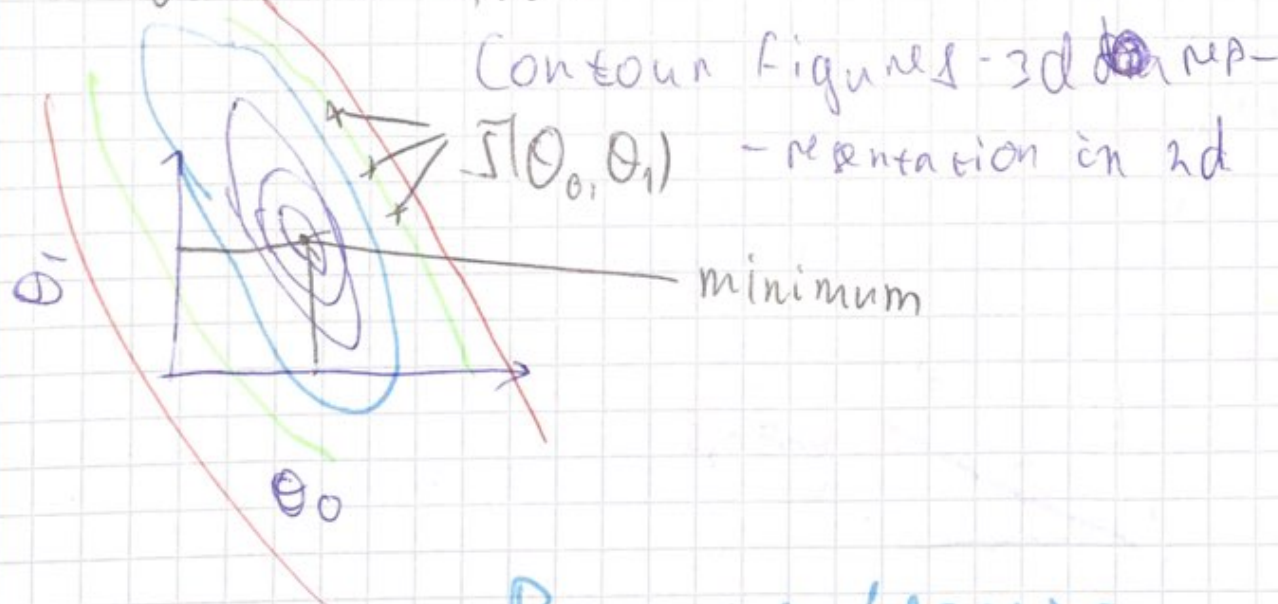 Contour figures - 3d rep-
J(θ₀, θ₁) - resentation in 2d
θ₁
minimum
θ₀